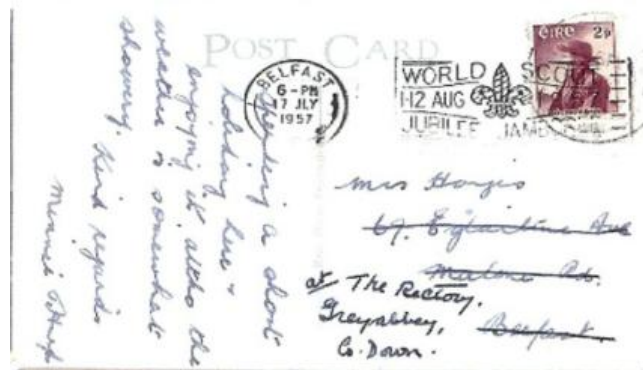 POST CARD
BELFAST
6-PM
17 JLY
1957
WORLD SCOUT
1-12 AUG 1957
JUBILEE JAMBOREE
éire 2p
Spending a short
holiday here &
enjoying it altho the
weather is somewhat
showery.
Kind regards
Mrs
69. Ave
Malone Rd.
Belfast.
at The Rectory,
Greyabbey,
Co. Down.